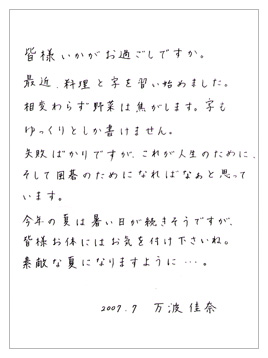 皆様いかがお過ごしですか。
最近、料理と字を習い始めました。
相変わらず野菜は焦がします。字も
ゆっくりとしか書けません。
失敗ばかりですが、これが人生のために、
そして囲碁のためになればなぁと思って
います。
今年の夏は暑い日が続きそうですが、
皆様お体にはお気を付け下さいね。
素敵な夏になりますように…。
2007.7 万波佳奈